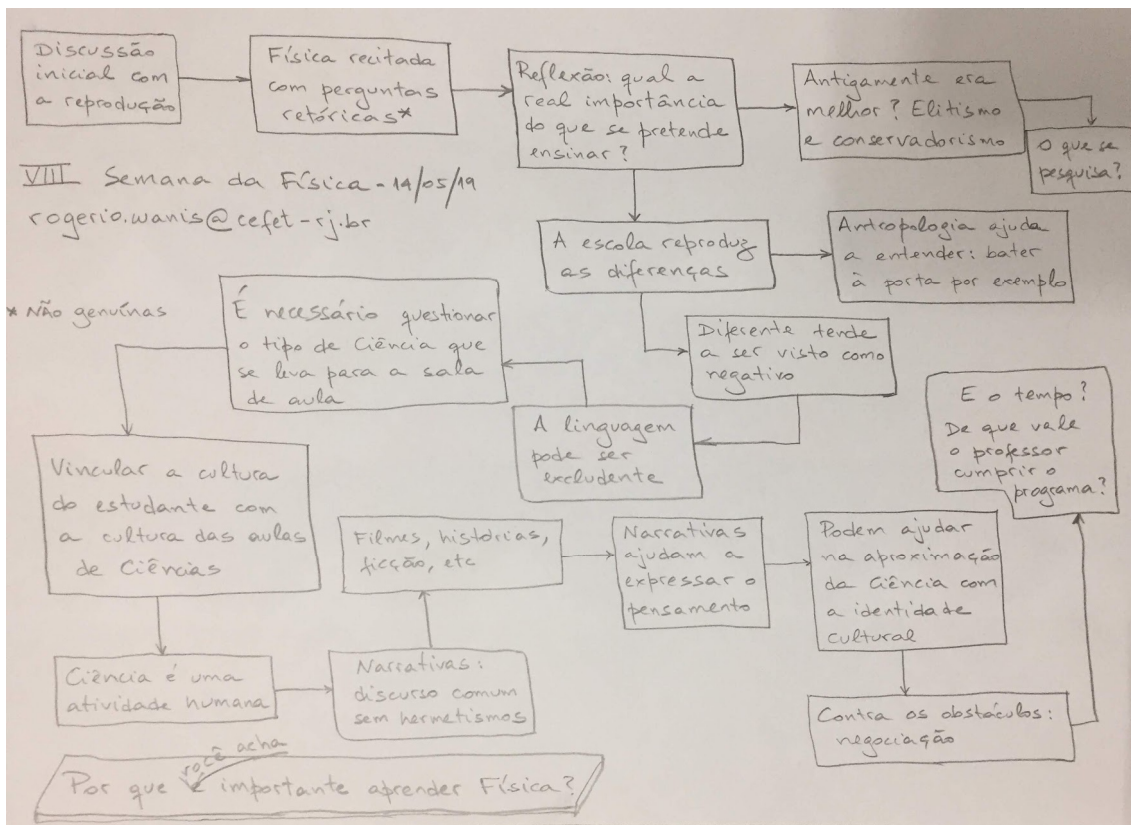 Discussão
inicial com
a reprodução
Física recitada
com perguntas
retóricas*
Reflexão: qual a
real importância
do que se pretende
ensinar?
Antigamente era
melhor? Elitismo
e conservadorismo
O que se
pesquisa?
VIII Semana da Física - 14/05/19
rogerio.wanis@cefet-rj.br
A escola reproduz
as diferenças
Antropologia ajuda
a entender: bater
à porta por exemplo
* Não genuínas
É necessário questionar
o tipo de Ciência que
se leva para a sala
de aula
Diferente tende
a ser visto como
negativo
A linguagem
pode ser
excludente
E o tempo?
De que vale
o professor
cumprir o
programa?
Vincular a cultura
do estudante com
a cultura das aulas
de Ciências
Filmes, histórias,
ficção, etc
Narrativas
ajudam a
expressar o
pensamento
Podem ajudar
na aproximação
da Ciência com
a identidade
cultural
Ciência é uma
atividade humana
Narrativas:
discurso comum
sem hermetismos
Contra os obstáculos:
negociação
você acha
Por que é importante aprender Física?